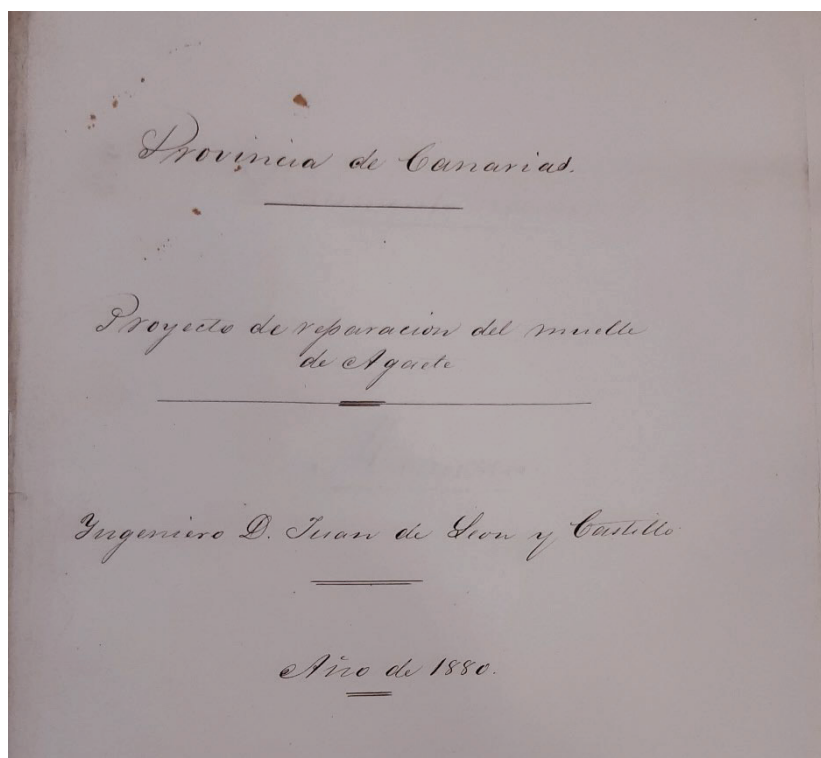 Provincia de Canarias.
Proyecto de reparacion del muelle
de Agaete
Ingeniero D. Juan de Leon y Castillo
Año de 1880.